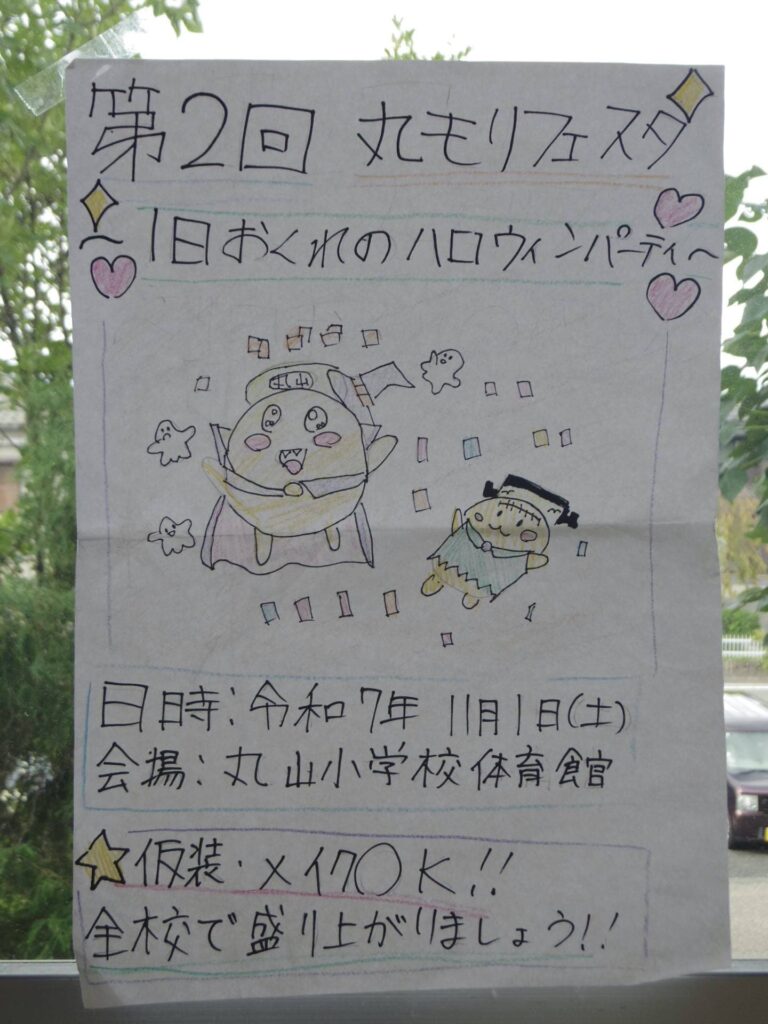 第2回 丸もりフェスタ
〜1日おくれのハロウィンパーティ〜
丸山
日時:令和7年 11月1日(土)
会場:丸山小学校体育館
仮装・メイク〇K!!
全校で盛り上がりましょう!!